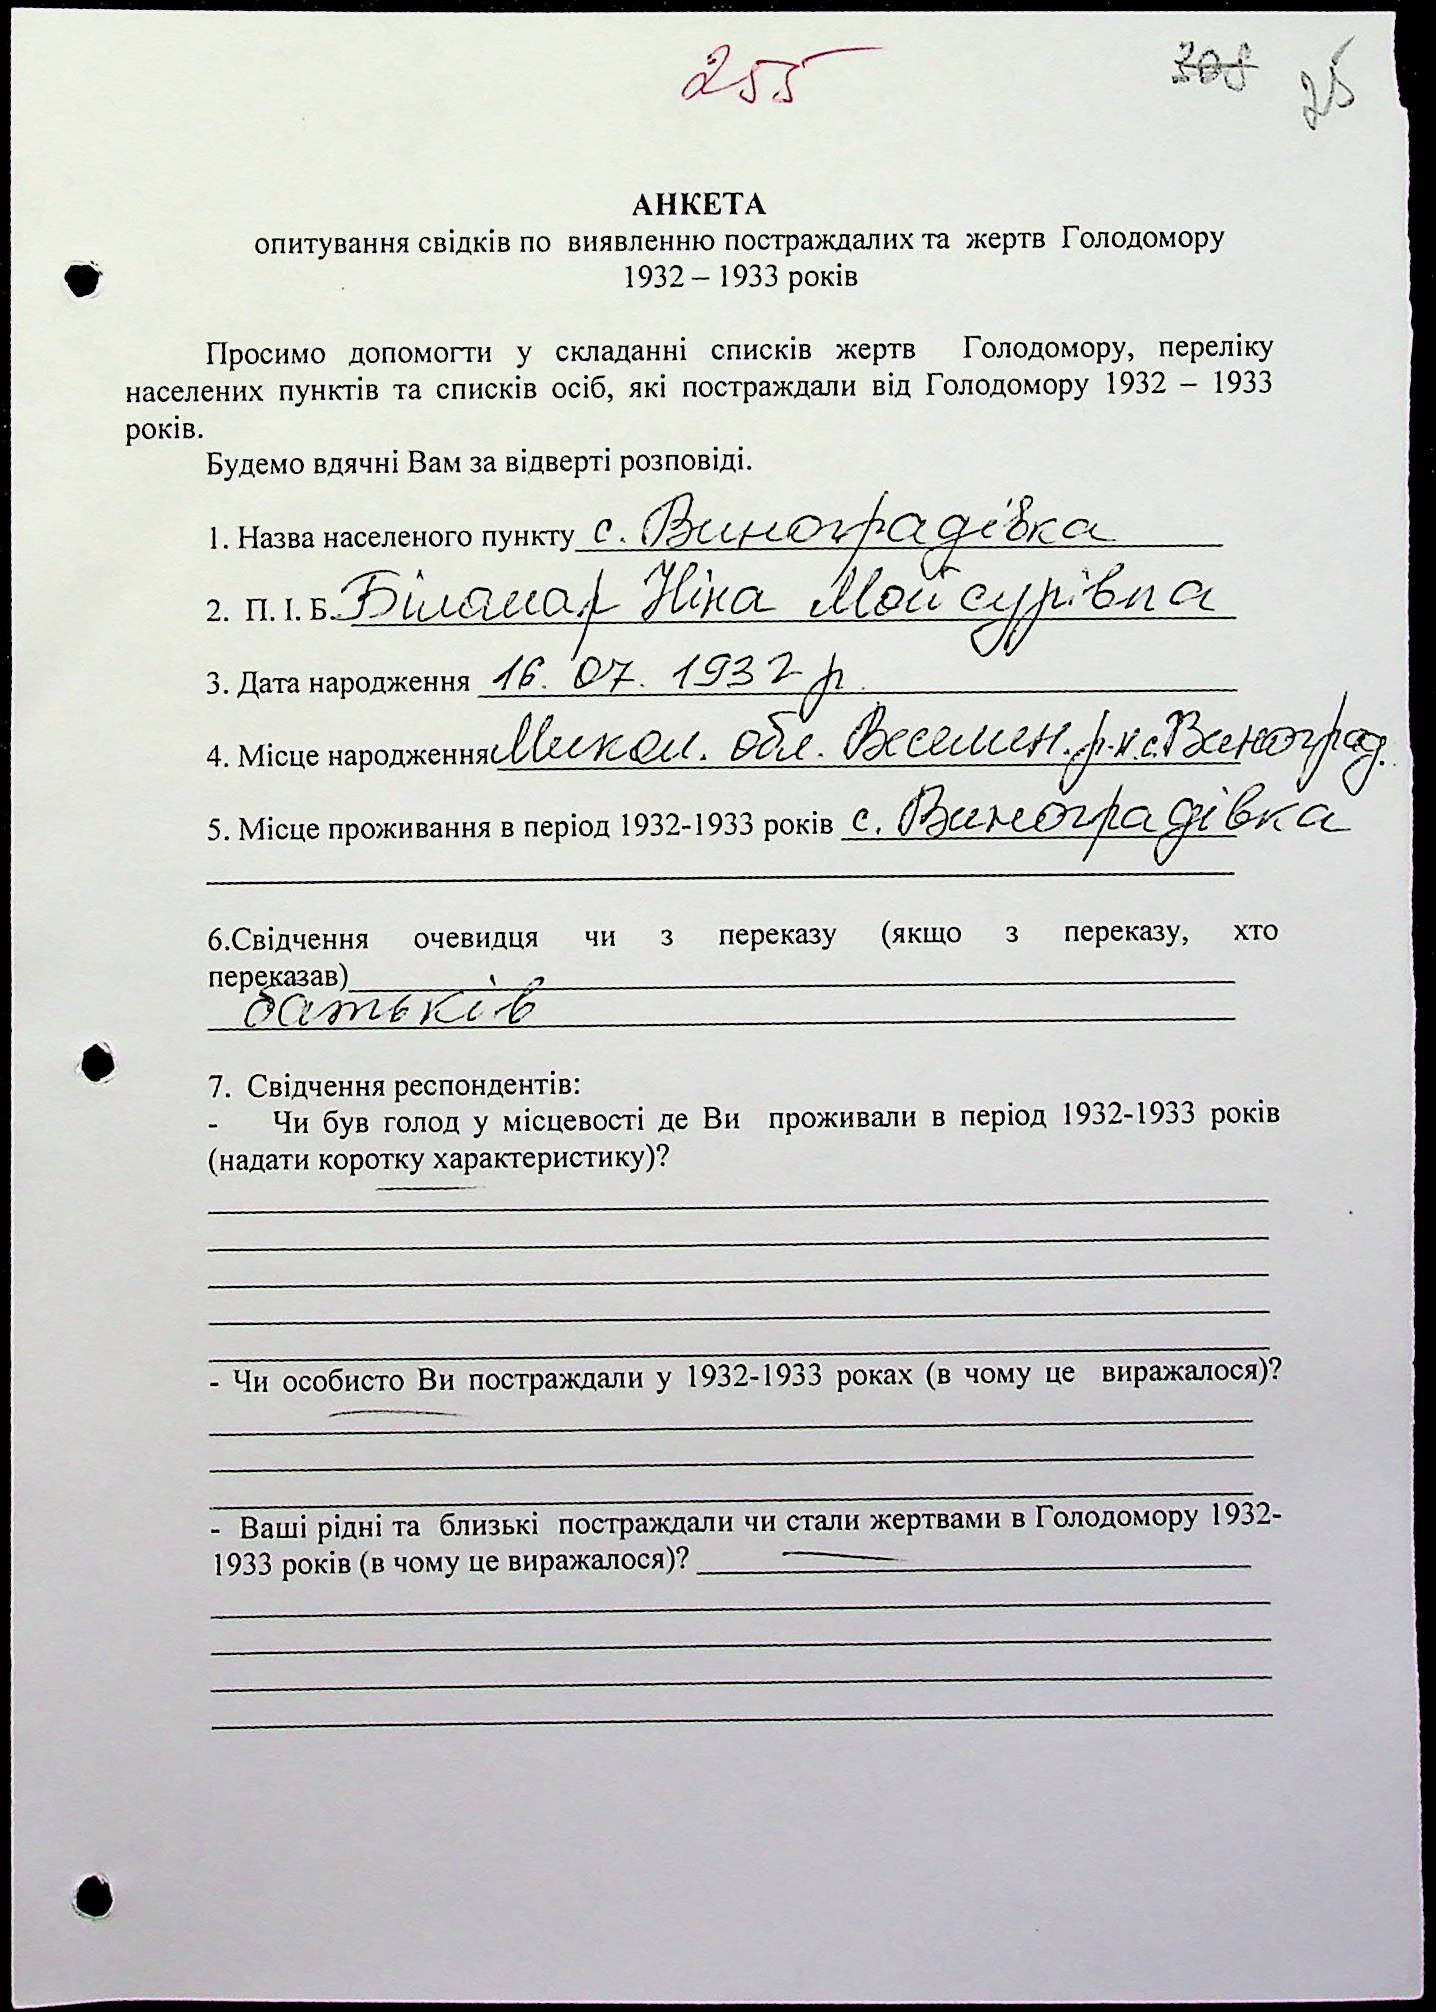 255
308 25
АНКЕТА
опитування свідків по виявленню постраждалих та жертв Голодомору
1932 – 1933 років
Просимо допомогти у складанні списків жертв Голодомору, переліку
населених пунктів та списків осіб, які постраждали від Голодомору 1932 – 1933
років.
Будемо вдячні Вам за відверті розповіді.
1. Назва населеного пункту с. Виноградівка
2. П. І. Б. Ніна
3. Дата народження 16. 07. 1932 р.
4. Місце народження Микол. обл. Веселин. р-н с. Виноград.
5. Місце проживання в період 1932-1933 років с. Виноградівка
6.Свідчення очевидця чи з переказу (якщо з переказу, хто
переказав)
батьків
7. Свідчення респондентів:
- Чи був голод у місцевості де Ви проживали в період 1932-1933 років
(надати коротку характеристику)?
- Чи особисто Ви постраждали у 1932-1933 роках (в чому це виражалося)?
- Ваші рідні та близькі постраждали чи стали жертвами в Голодомору 1932-
1933 років (в чому це виражалося)?